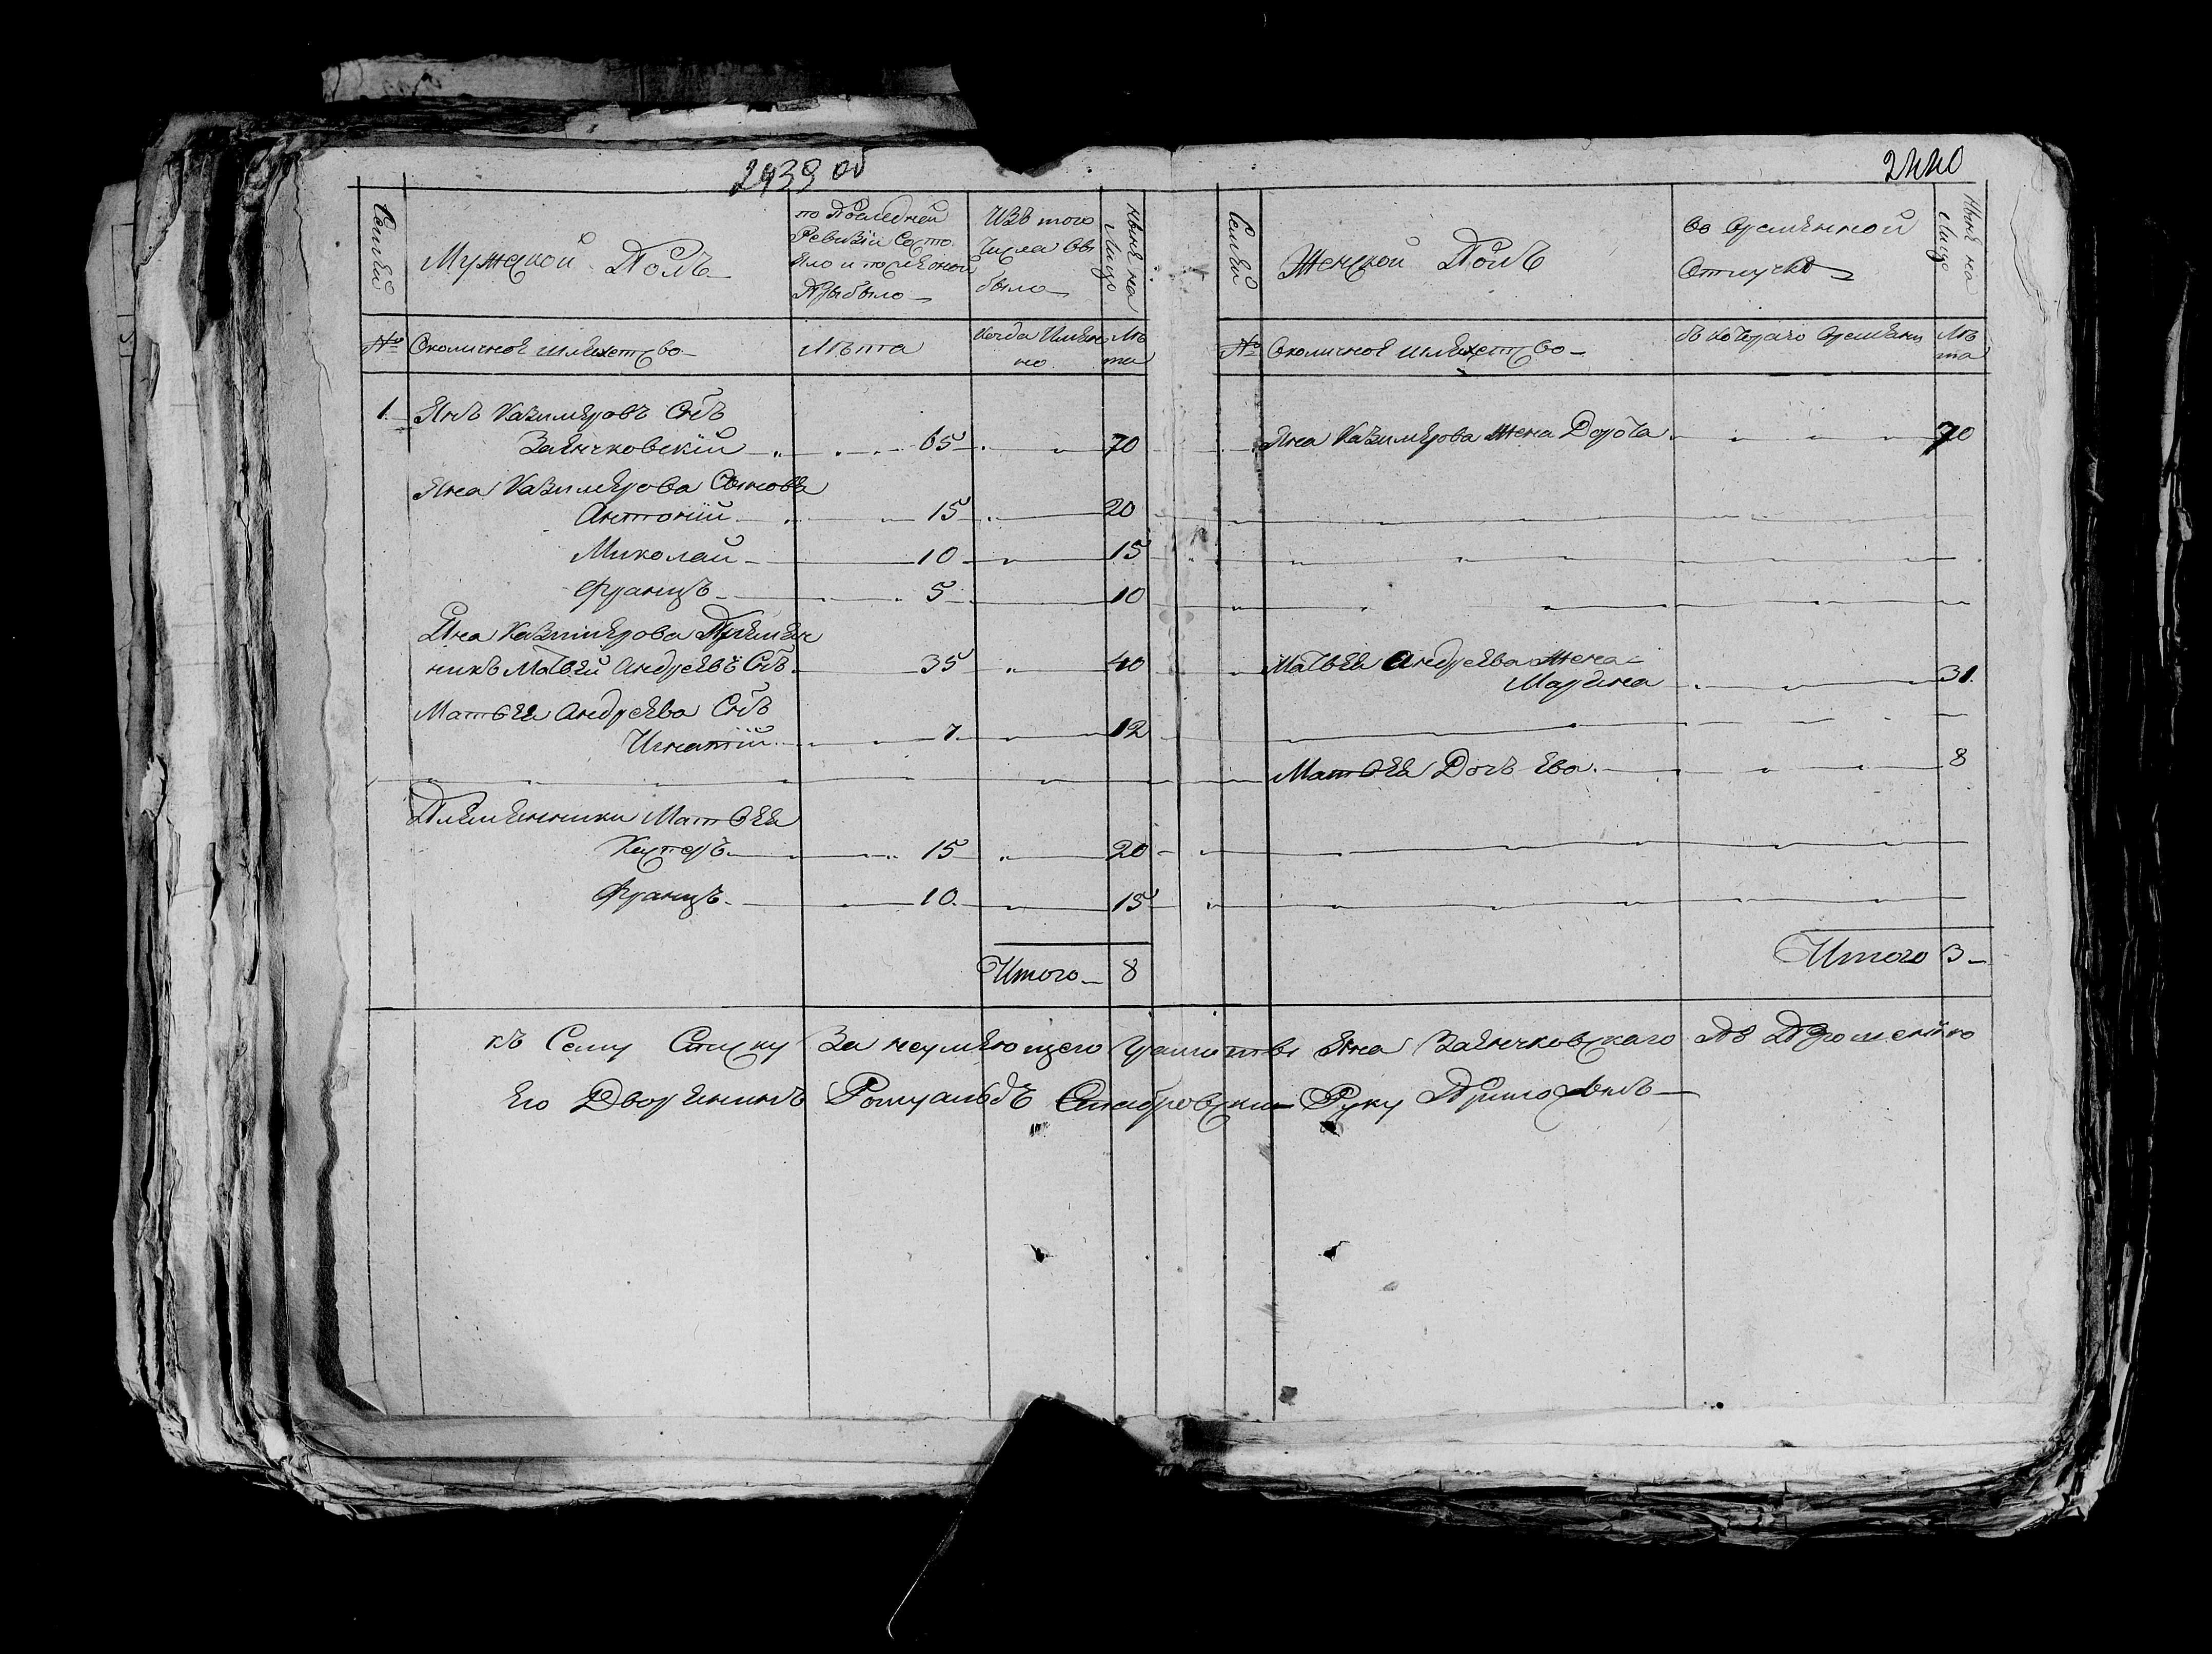 2439 об
Семьи
Мужеской Полъ
по Последней
Ревизіи Состо
яло и после оной
Прыбыло
Изъ того
Числа Вы
было
Ныне на
Лицо
№
Околичное шляхетство
Лѣта
Когда Имян
но
Лѣ
та
1.
Янъ Казимеровъ Снъ
Заянчковскій 65 70
Яна Казимерова Сыновя
Антоній 15 20
Миколай 10 15
Францъ 5 10
Яна Казимерова Племян
никъ Матвей Андреевъ Снъ 35 40
Матвея Андреева Снъ
Игнатій 7 12
Племянники Матвея
Касперъ 15 20
Францъ 10 15
Итого 8
2440
Семьи
Женской Полъ
во Временной
Отлучке
Ныне на
Лицо
№
Околичное шляхетство
съ которого времяни
Лѣ
та
Яна Казимерова Жена Дорота 70
Матвея Андреева Жена
Марьяна 31
Матвея Дочь Ева 8
Итого 3
къ Сему Списку За неумеющего Грамоти Яна Заянчковскаго По Прошению
Его Дворянинъ Ромуальдъ Руку Приложилъ